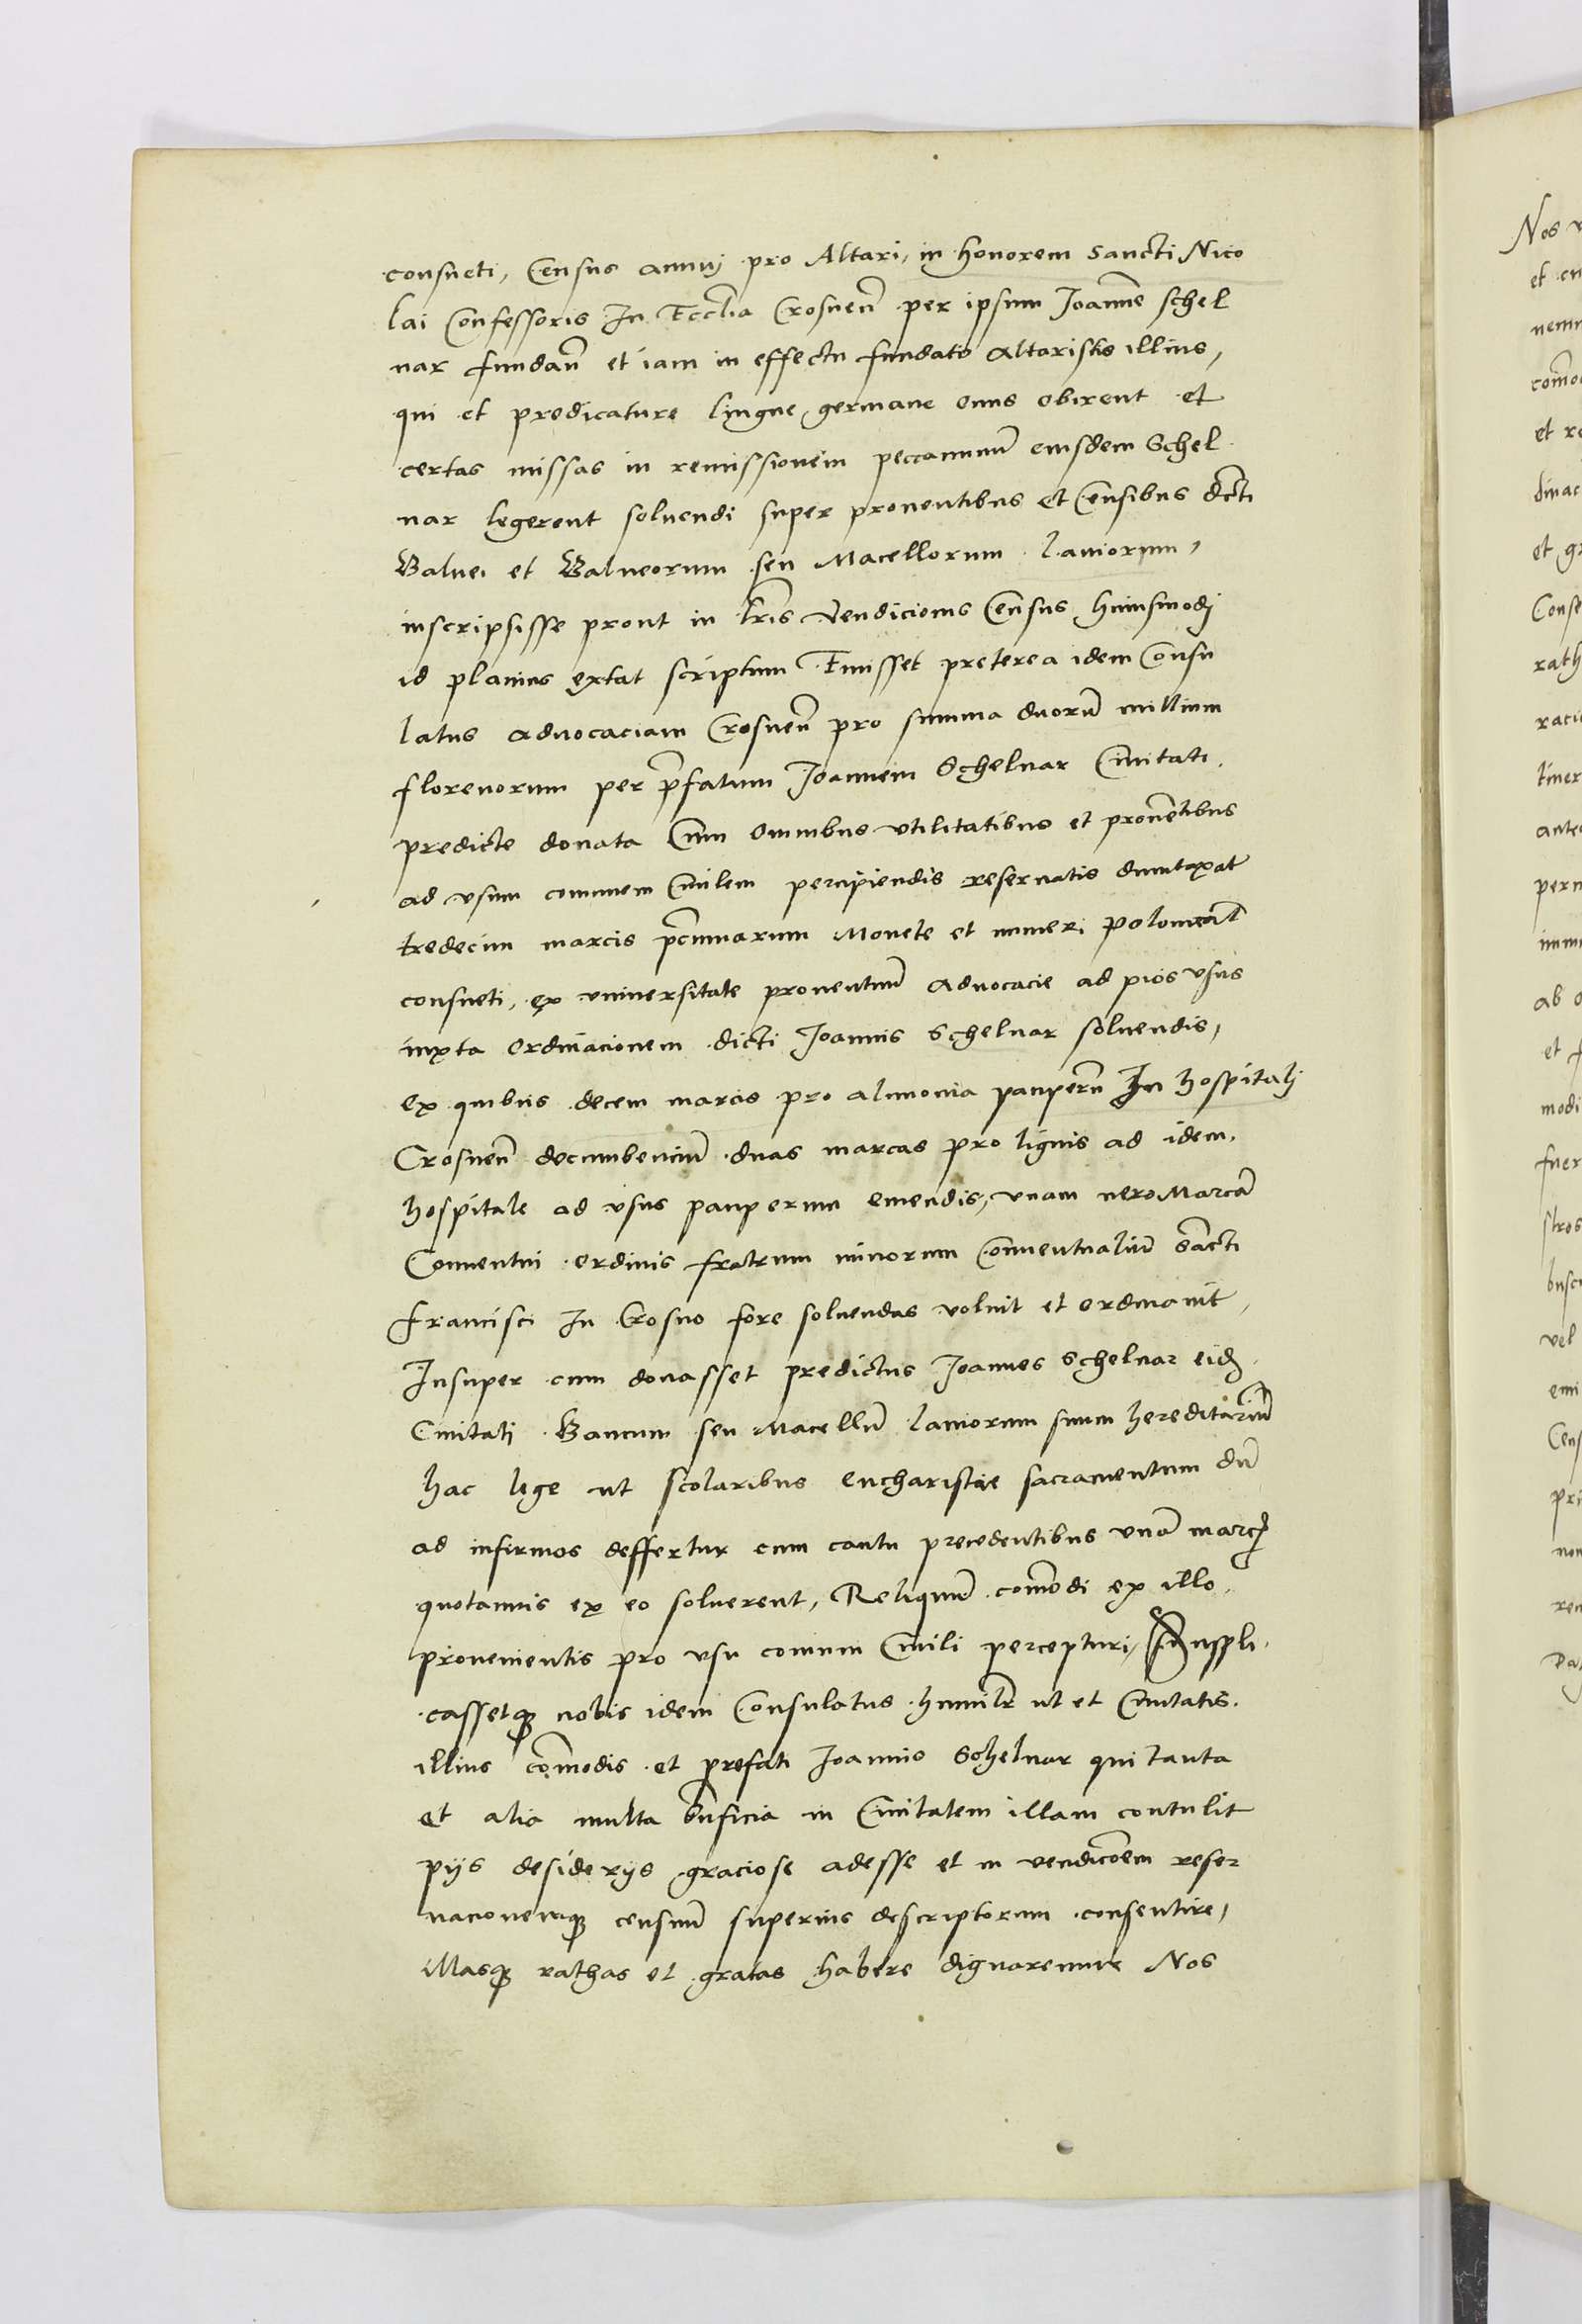 consueti, Census annuj pro Altari, in honorem sancti Nico
lai Confessoris In Ecclia Crosnen̄ per ipsum Joannē Schel
nar fundan̄ et iam in effectu fundato Altaristis illius,
qui et predicature lingue germane onus obirent et
certas missas in remissionem peccaminū eiusdem Schel
nar legerent soluendi super prouentibus et Censibus dcti
Balnei et Balneorum seu Macellorum laniorum,
inscripsisse prout in lris vendicionis Census huiusmodj
id planius extat scriptum Emisset preterea idem Consu
latus aduocaciam Crosnen̄ pro summa duorū millium
florenorum per prefatum Joannem Schelnar Ciuitati
predicte donata Cum omnibus vtilitatibus et prouētibus
ad vsum communem Ciuilem percipiendis reseruatis dumtaxat
tredecim marcis pccuniarum Monete et numeri polonicāl
consueti, ex vniuersitate prouentuū aduocacie ad pios vsus
iuxta ordinacionem dicti Joannis Schelnar soluendis,
ex quibus decem marcis pro alimonia pauperū In hospitalj
Crosnen̄ decumbenciū duas marcas pro lignis ad idem
hospitale ad vsus pauperum emendis, vnam uero Marcā
Conuentui ordinis fratrum minorum Conuentualiū sancti
francisci In Crosno fore soluendas voluit et ordinauit,
Insuper cum donasset predictus Joannes Schelnar eidē
Ciuitatj Bancum seu Macellū laniorum suum hereditariū
hac lege ut scolaribus eucharistie sacramentum dū
ad infirmos deffertur cum cantu precedentibus vnā marcā
quotannis ex eo soluerent, Reliquū comōdi ex illo
prouenientis pro vsu comuni Ciuili percepturi, suppli
cassetqȝ nobis idem Consulatus humilr ut et Ciuitatis
illius comōdis et prefati Joannis Schelnar qui tanta
et alia multa bnficia in Ciuitatem illam contulit
pijs desiderijs graciose adesse et in vendicōem reser
uacionemqȝ censuū superius descriptorum consentire,
illasqȝ rathas et gratas habere dignaremur Nos